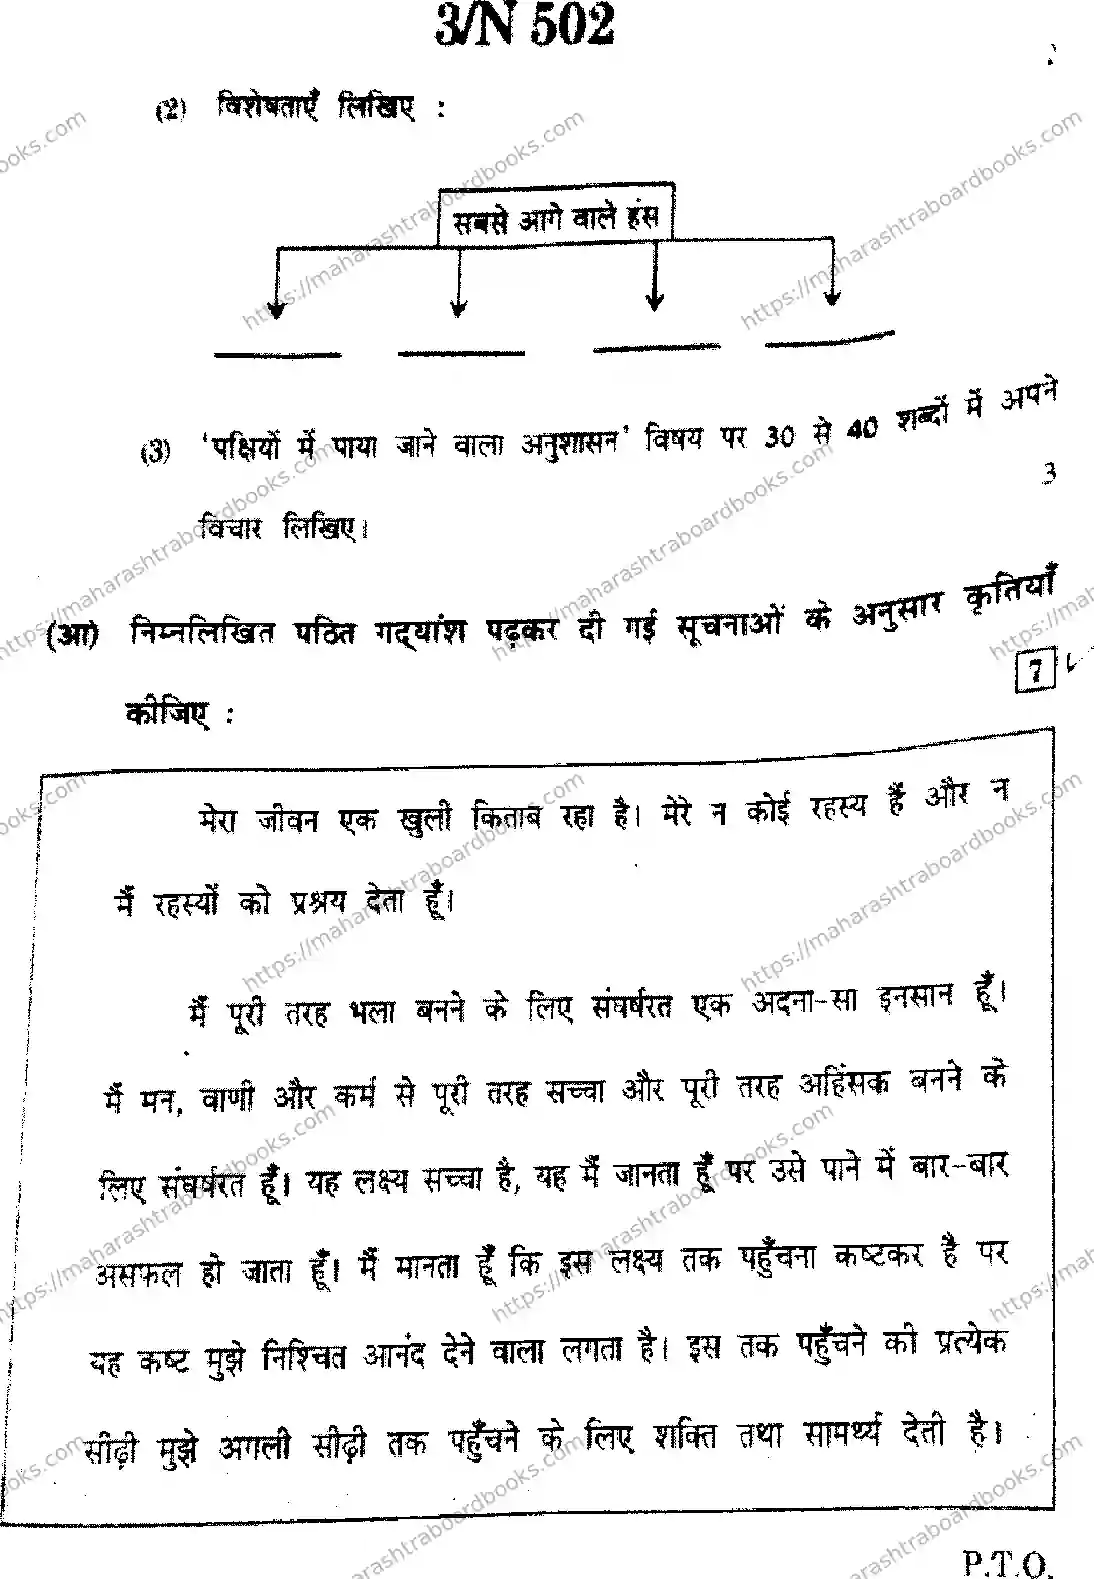 3/N 502
(2) विशेषताएँ लिखिए :
सबसे आगे वाले हंस
(3) 'पक्षियों में पाया जाने वाला अनुशासन' विषय पर 30 से 40 शब्दों में अपने
3
विचार लिखिए।
(आ) निम्नलिखित पठित गद्यांश पढ़कर दी गई सूचनाओं के अनुसार कृतियाँ
7
कीजिए :
मेरा जीवन एक खुली किताब रहा है। मेरे न कोई रहस्य हैं और न
मैं रहस्यों को प्रश्रय देता हूँ।
मैं पूरी तरह भला बनने के लिए संघर्षरत एक अदना-सा इनसान हूँ।
मैं मन, वाणी और कर्म से पूरी तरह सच्चा और पूरी तरह अहिंसक बनने के
लिए संघर्षरत हूँ। यह लक्ष्य सच्चा है, यह मैं जानता हूँ पर उसे पाने में बार-बार
असफल हो जाता हूँ। मैं मानता हूँ कि इस लक्ष्य तक पहुँचना कष्टकर है पर
यह कष्ट मुझे निश्चित आनंद देने वाला लगता है। इस तक पहुँचने की प्रत्येक
सीढ़ी मुझे अगली सीढ़ी तक पहुँचने के लिए शक्ति तथा सामर्थ्य देती है।
P.T.O.
https://maharashtraboardbooks.com